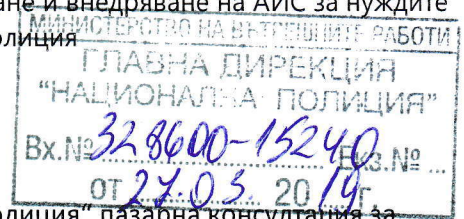 ане и внедряване на АИС за нуждите
олиция
МИНИСТЕРСТВО НА ВЪТРЕШНИТЕ РАБОТИ
ГЛАВНА ДИРЕКЦИЯ
"НАЦИОНАЛНА ПОЛИЦИЯ"
Вх.№ 328600-15240 Екз.№ ...
от 27.03. 2019 г.
олиция" пазарна консултация за